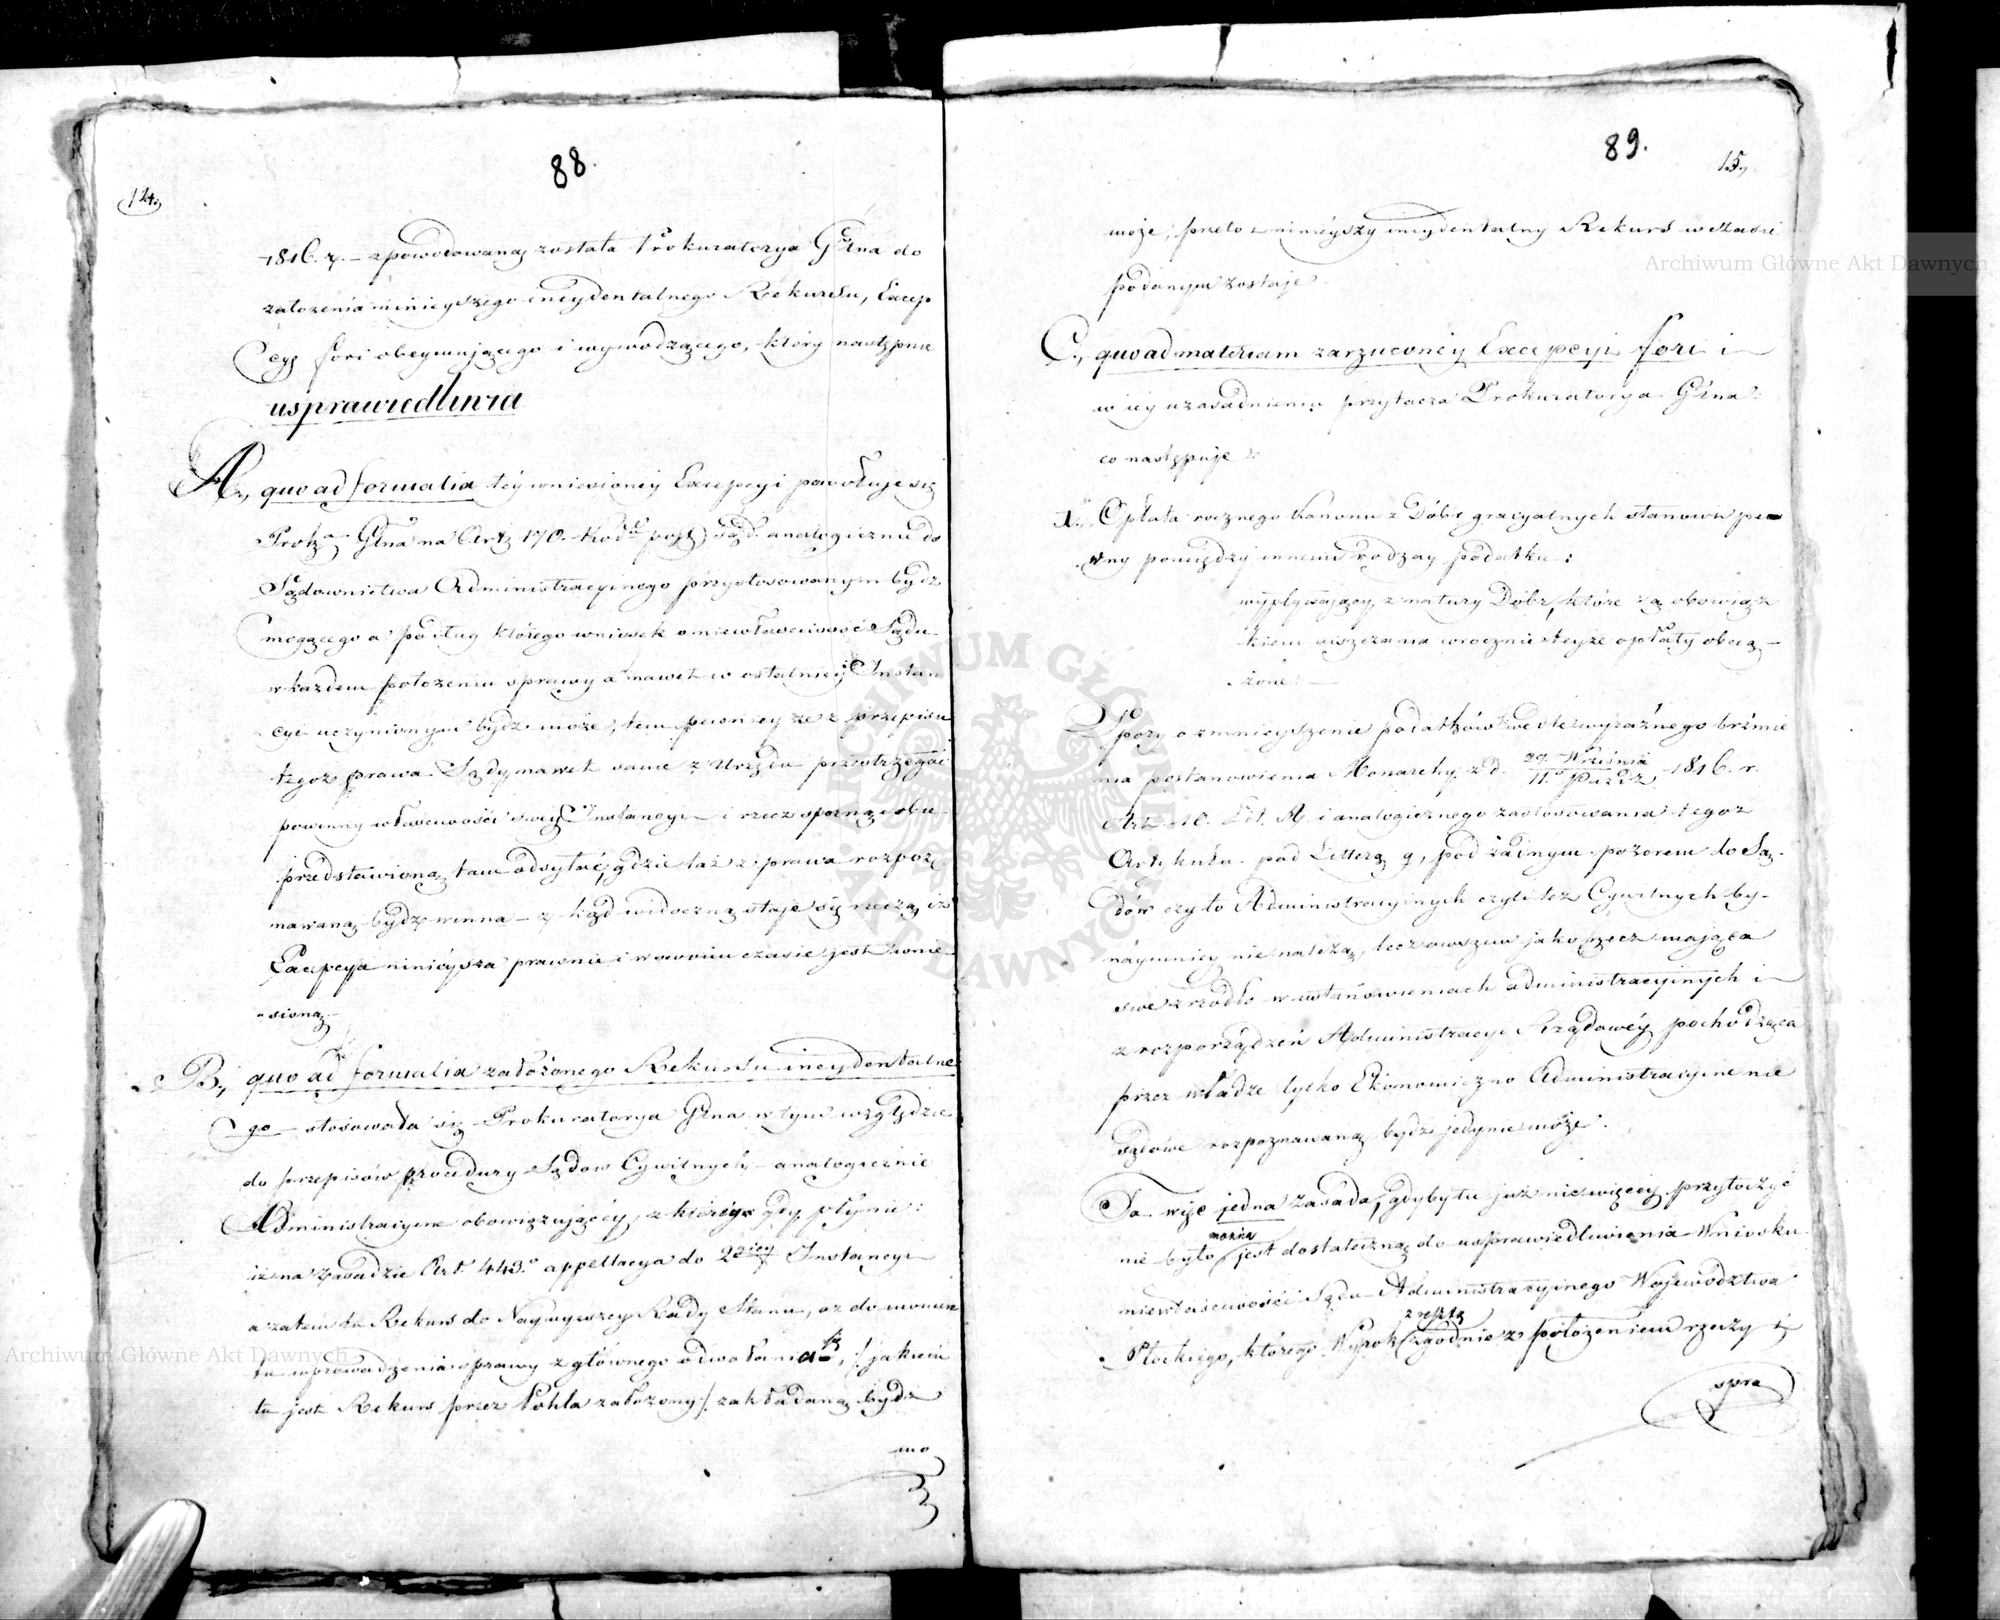 88.
14.
1816. r. – spowodowaną została Prokuratorya Głna do
założenia ninieyszego incydentalnego Rekursu, Excep
cyą fori obeymującego i wywodzącego, który następnie
usprawiedliwia
A., quo ad formalia téy wniesionéy Excepcyi powołuje się
Protza Głna na Art 170. Kodx post: Sąd. analogicznie do
Sądownictwa Administracyinego przystosowanym bydz
mogącego a podług którego wniosek o niewłaściwość Sądu
w każdem położeniu sprawy a nawet w ostatniéy Instan
cyi uczynionym bydz może, tem pewniey że z przepisu
tegoż prawa Sądy nawet same z Urzędu przestrzegać
powinny właściwości swéy Instancyi i rzecz sporną sobie
przedstawioną tam odsyłać, gdzie taż z prawa rozpoz
nawaną bydz winna – z kąd widoczną staje się rzeczą, iż
Excepcya ninieysza prawnie i w swoim czasie jest wnie
sioną.
B., quo ad formalia założonego Rekursu incydentalne
go – stosowała się Prokuratorya Głna w tym względzie
do przepisów procedury Sądów Cywilnych – analogicznie
Administracyine obowiązującéy, z któréy gdy płynie:
iż na zasadzie Art. 443.º appellacya do 2giey Instancyi
a zatem tu Rekurs do Naywyższey Rady Stanu, aż do momen
tu wprowadzenia sprawy z głównego odwołania się, /: jakiem
tu jest Rekurs przez Pohla założony :/ zakładaną bydz
mo
89.
15.
może; przeto i ninieyszy incydentalny Rekurs w czasie
podanym zostaje.
C., quo ad materiam zarzuconéy Excepcyi fori i
w iey uzasadnieniu przytacza Prokuratorya Głna:
co następuje:
1., Opłata rocznego Kanonu z Dóbr gracyalnych stanowi pe
wny pomiędzy innemi rodzay podatku:
wypływający z natury Dóbr, które są obowiąz
kiem uiszczania wrocznie teyże opłaty obcią
żone. –
Spory o zmnieyszenie podatków wedle wyraźnego brzmie
nia postanowienia Monarchy z d. 29. Września / 11. Paźdz. 1816. r.
Art. 10. Lit. A. i analogicznego zastosowania tegoż
Artykułu pod Litterą g, pod żadnym pozorem do Są
dów czy to Administracyinych czyli też Cywilnych by
náymniey nie należą, lecz owszem jako rzecz mająca
swe zrzódło w ustanowieniach administracyinych i
z rozporządzeń Administracyi Rządowéy pochodząca
przez władze tylko Ekonomiczno Administracyine nie
sądowe rozpoznawaną bydz jedynie może.
Ta więc jedna zasada, gdyby tu już nic więcéy przytoczyć
można
nie było jest dostateczną do usprawiedliwienia Wniosku
niewłaściwości Sądu Administracyinego Województwa
z resztą
Płockiego, którego Wyrok zgodnie z położeniem rzeczy i
spra
Archiwum Główne Akt Dawnych
Archiwum Główne Akt Dawnych
ARCHIWUM GŁÓWNE AKT DAWNYCH